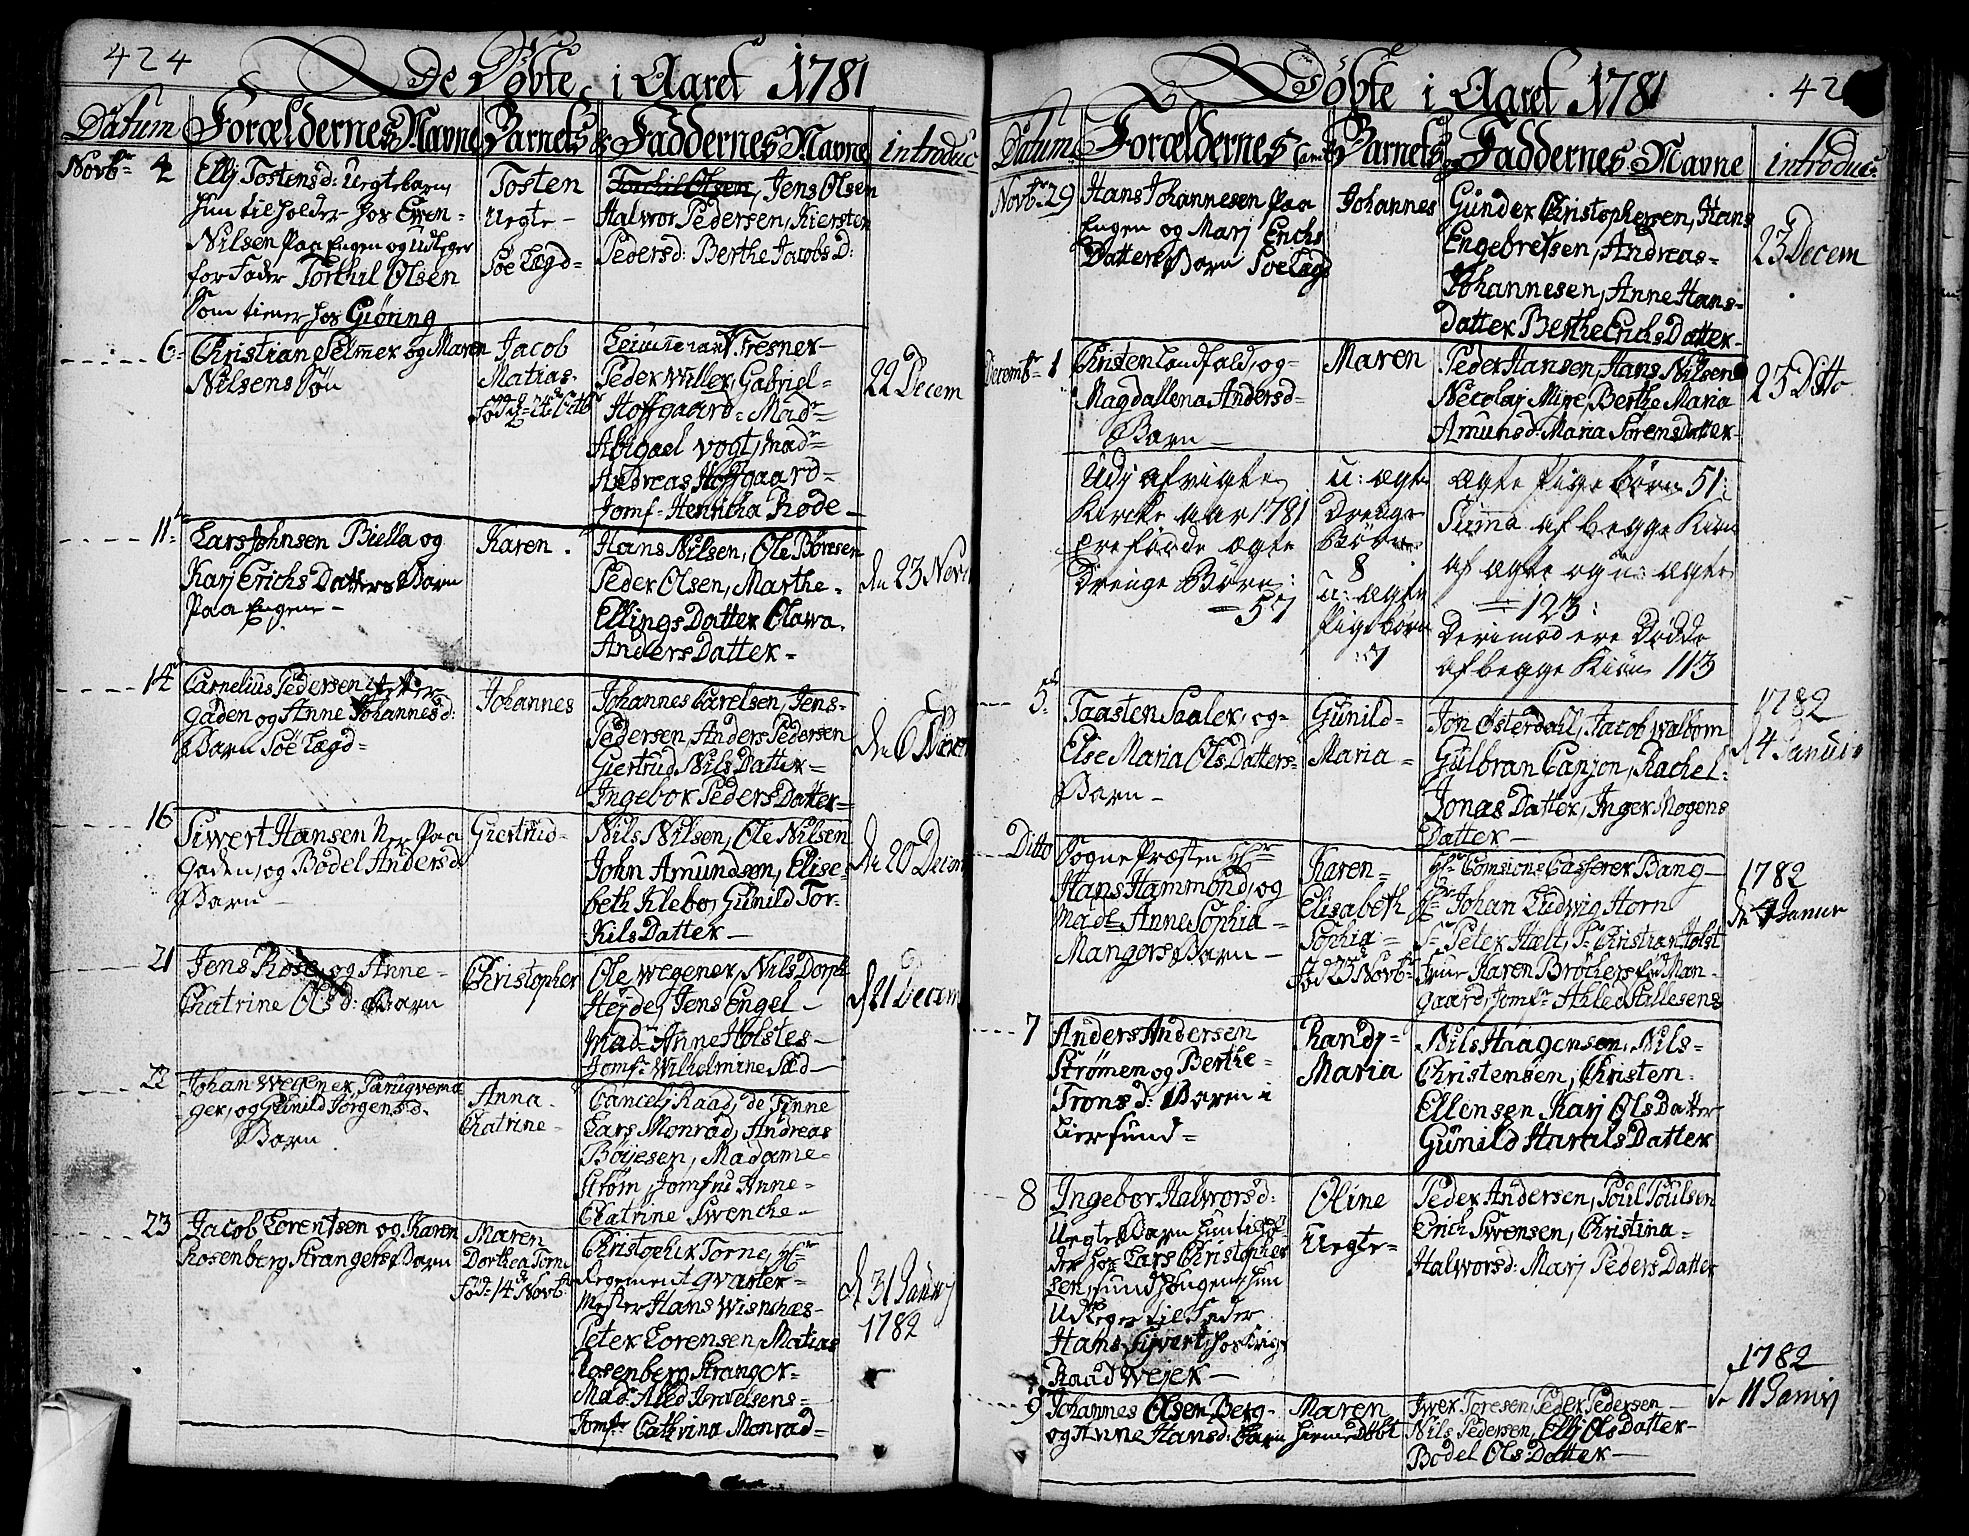 424
De Döbte i Aaret 1781
Datum Forældernes Navne Barnets Faddernes Navne introduc
Novbr 4 Ellj Tostensd: Uegtebarn
hun tilholder hos Ewen-
Nilsen paa Engen og Udleger
for Fader Torchil Olsen
Som tiener hos Giöring
Tosten
Uegte-
Söe Lægd=
Torchil Olsen, Jens Olsen
Halwor Pedersen, Kiersten
Pedersd: Berthe Jacobs D:
6 Christian Selmer og Maren
Nilsens Sön
Jacob
Matias-
Fresner-
Peder Willer, Gabriel=
Hoffgaard= Mad=
Abigael Vogt, Mad=
Andreas Hoffgaard-
Jomf= Henrikha Rode-
22 Decem
11 Lars Johnsen Biella og
Karj Erichs Datters Barn
paa Engene-
Karen.
Hans Nilsen, Ole Boresen
Peder Olsen, Marthe-
Ellings Datter Olawa.
Anders Datter-
dn 23 Nov
14 Carnelius Pedersen
gaden og Anne Johannesd:
Barn Söe Lægd=
Johannes
Johannes Carelsen, Jens-
Pedersen, Anders Pedersen
Giertrud Nils Datter-
Ingebor Peders Datter=
dn 6
16 Siwert Hansen Ner paa
gaden, og Bodel Andersd
Barn-
Giertrud-
Nils Nilsen, Ole Nilsen
John Amundsen, Elise-
beth Klebo, Gunild Tor-
Kils Datter-
dn 20 Decem
21 Jens Rose, og Anne-
Chatrine Olsd: Barn
Christopher
Ole Wegener, Nils Dorph
Hejde, Jens Engel-
Mad= Anne Holstes-
Jomf= Wilhelmine Sæd-
d 21 Decem
22 Johan Wegener Paruqvema
-ger, og Gunild Jörgensd.
Barn
Anna.
Chatrine-
Cancelj Raad, de Finne
Lars Monrad, Andreas
Böijesen, Madame-
Ström, Jomfru Anne-
Chatrine Swenche-
23 Jacob Lorentsen og Karen
Rosenberg Strangers Barn
Maren
Dorthea Torne
föd= 14 Novbr
Christopher Torne, Hr
Regement qvarter-
Mester Hans Wisnchæs-
Peter Lorensen, Matias
Rosenberg Stranger-
Mad: Aled
Jomfr Cathrina Monrad=
d 31 Januj
1782
Döbte i Aaret 1781
42
Datum Forældernes Barnets Faddernes Navne introduc:
Novbr 29 Hans Johannesen paa
Engen og Marj Erichs
Datters Barn Söe Lægd
Johannes
Gunder Christophersen, Hans
Engebretsen, Andreas-
Johannesen, Anne Hans-
Datter Berthe Erichs Datter-
23 Decem
Decembr 1 Christen Landfald, og-
Magdallena Andersd-
Barn-
Maren
Peder Hansen, Hans Nilsen
Necolaj Mire, Berthe Maria
Amunsd: Maria Sorens Datter-
25 Ditto
Udj afvigte
Kircke aar 1781
ere föde ægte
Drenge Börn:
= 57
U: ægte
Drenge
Börn
8
u: ægte
Pigebörn
:7
ægte Pigebörn 51:
Suma af begge Kiön
af ægte og u: ægte
= 123:
Derimod ere Dödde
af begge Kiön 113
5 Taasten Saaler, og-
Else Maria Ols Datters-
Barn-
Gunild-
Maria-
Jon Österdall, Jacob Walbom
Gulbran Canjon, Rachel-
Jonas Datter, Inger Mogens
Datter-
1782
d 4 Januir
Ditto Sogne Præsten Hr
Hans Hammond, og
Made Anne Sophia-
Mangors Barn-
Karen-
Elisabeth
Sophia-
föd 23 Novbr
Hr Comsions Casserer Bang-
Johan Ludwig Horn
Sr Peter Hælt, Sr Christian Holst
Frue Karen Bröchers föd Man-
gaard, Jomfr Ahled Stillesens
1782
7 Anders Andersen
Strömen og Berthe-
Tronsd: Barn i
Lierfund=
Randj-
Maria
Nils Haagensen, Nils-
Christensen, Christen-
Ellensen Karj Ols Datter
Gunild Harals Datter
8 Ingebor Halworsd:
Uegte Barn hun tilhol-
der hos Lars Christopher
sen,
Udleger til Fader
Hans Sijvert,
Raad Wejer-
Oline
Uegte-
Peder Andersen, Poul Poulsen
Erich Swensen, Christina-
Halworsd: Marj Peders Datter
9 Johannes Olsen Berg-
og Anne Hansd: Barn
Maren
hieme Döbt
Iwer Toresen, Peder Pedersen-
Nils Pedersen, Ellj Ols Datter-
Bodel Ols Datter-
1782
d 11 Januj